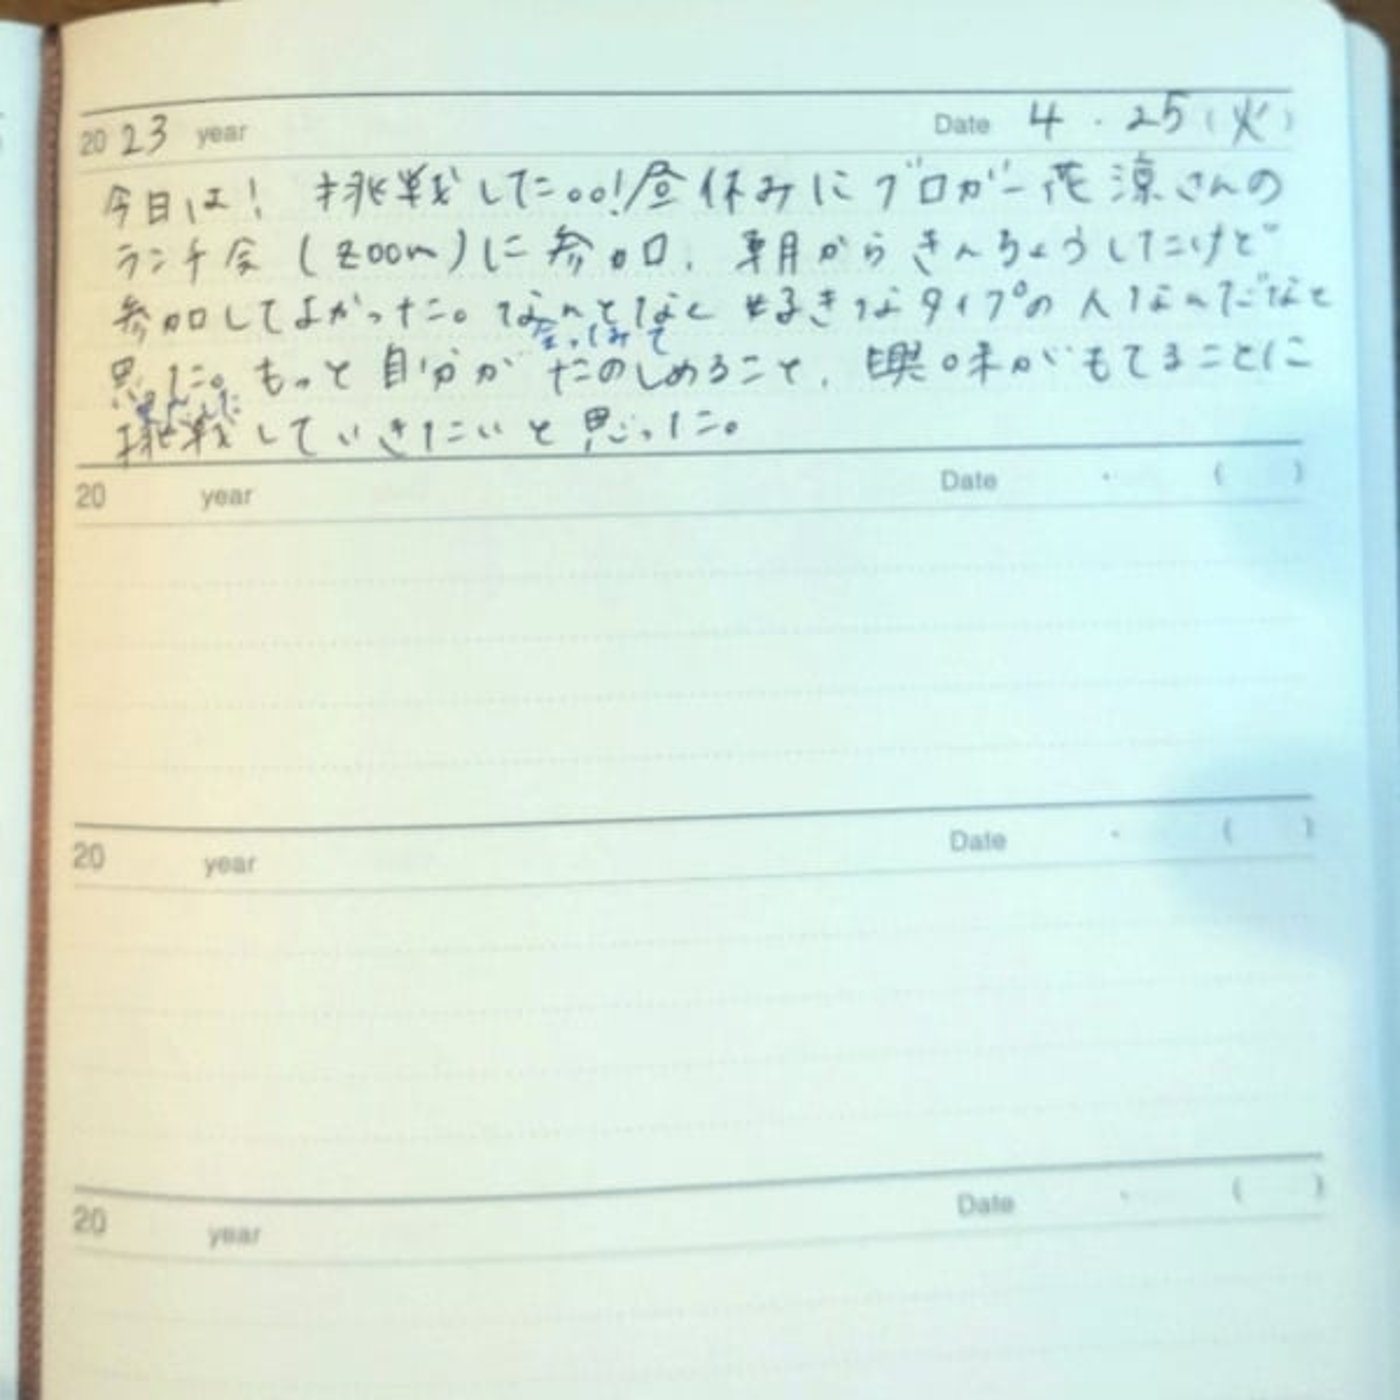 2023 year Date 4・25(火)
今日は! 挑戦した。。!昼休みにブロガー花凛さんの
ランチ会(zoom)に参加、朝からきんちょうしたけど
参加してよかった。なんとなく好きなタイプの人なんだなと
会ってみて
思った。もっと自分がたのしめること、興味がもてることに
挑戦していきたいと思った。
20 year Date ・ ( )
20 year Date ・ ( )
20 year Date ・ ( )